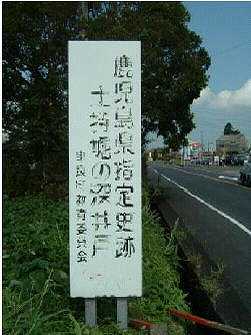 鹿児島県指定史跡
土持堀の深井戸
串良町教育委員会